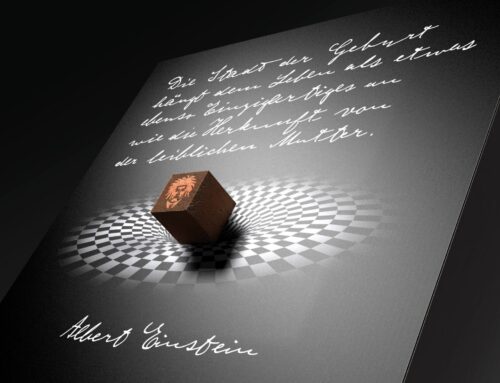 Die Stadt der Geburt
hängt dem Leben als etwas
ebenso Einzigartiges an
wie die Herkunft von
der leiblichen Mutter.
Albert Einstein